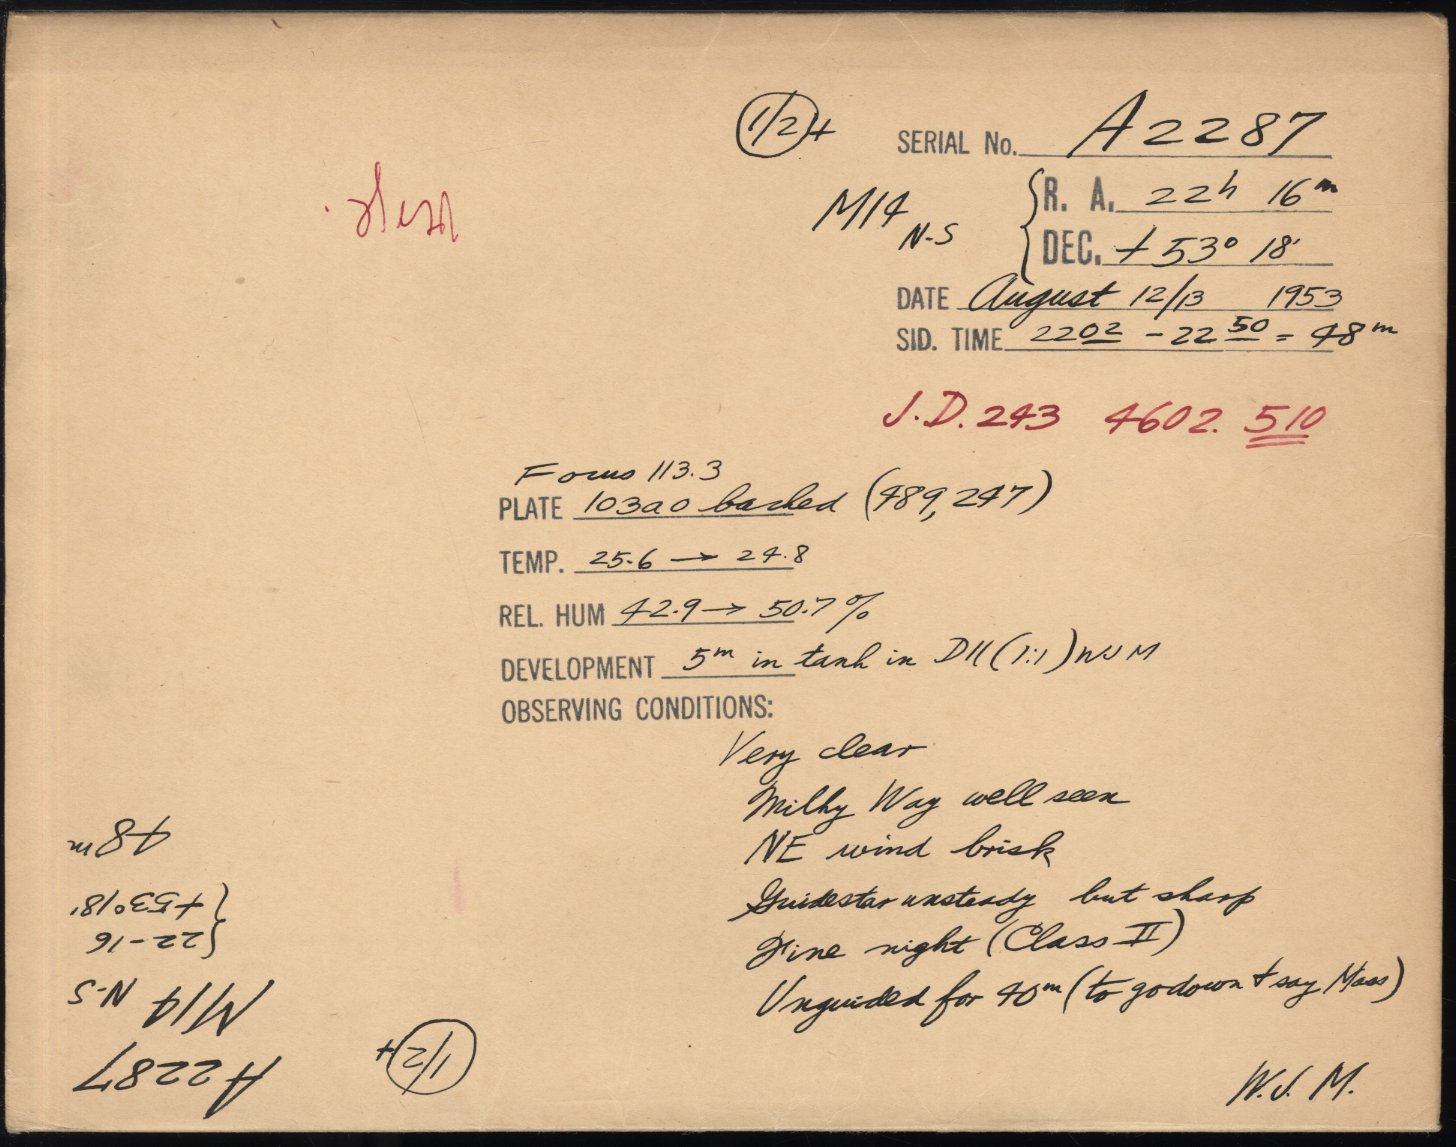 1/2+
SERIAL No. A2287
M14 N-S
R. A. 22h 16m
DEC. + 53° 18'
DATE August 12/13 1953
SID. TIME 22 02 - 22 50 = 48m
J.D. 243 4602.510
Focus 113.3
PLATE 103a0 backed (489, 247)
TEMP. 25.6 → 24.8
REL. HUM 42.9 → 50.7%
DEVELOPMENT 5m in tank in D11 (1:1) WJM
OBSERVING CONDITIONS:
Very clear
Milky Way well seen
NE wind brisk
Guidestar unsteady but sharp
Fine night (Class II)
Unguided for 40m (to go down + say Mass)
W.J.M.
A2287
1/2+
M14 N-S
22-16
+53°18'
48m